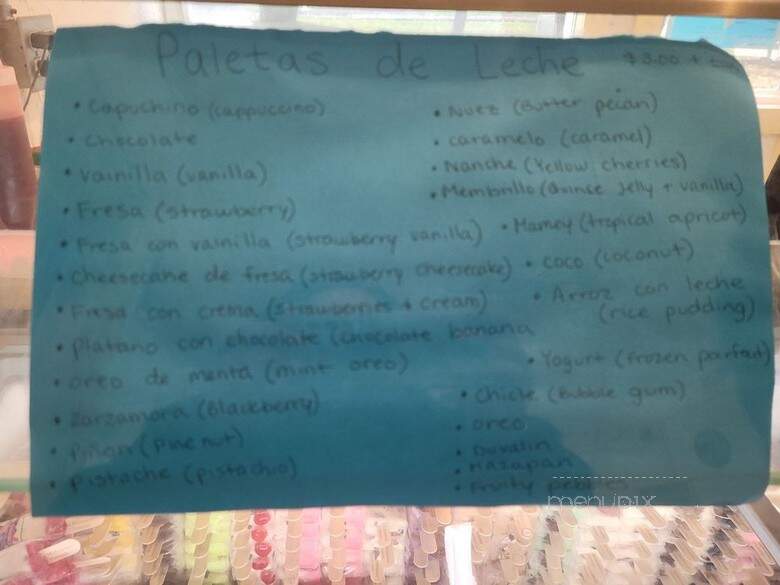 Paletas de Leche $3.00 +
• Capuchino (cappuccino)
• Chocolate
• Vainilla (vanilla)
• Fresa (strawberry)
• Fresa con vainilla (strawberry vanilla)
• Cheesecake de fresa (strawberry cheesecake)
• Fresa con crema (strawberries + cream)
• Platano con chocolate (chocolate banana
• oreo de menta (mint oreo)
• Zarzamora (Blackberry)
• Piñon (pine nut)
• Pistache (pistachio)
• Nuez (Butter pecan)
• caramelo (caramel)
• Nanche (Yellow cherries)
• Membrillo (Quince Jelly + vanilla)
• Mamey (tropical apricot)
• coco (coconut)
• Arroz con leche
(rice pudding)
• Yogurt (frozen parfait)
• Chicle (Bubble gum)
• oreo
• Duvalin
• Mazapan
• Fruity
menupix